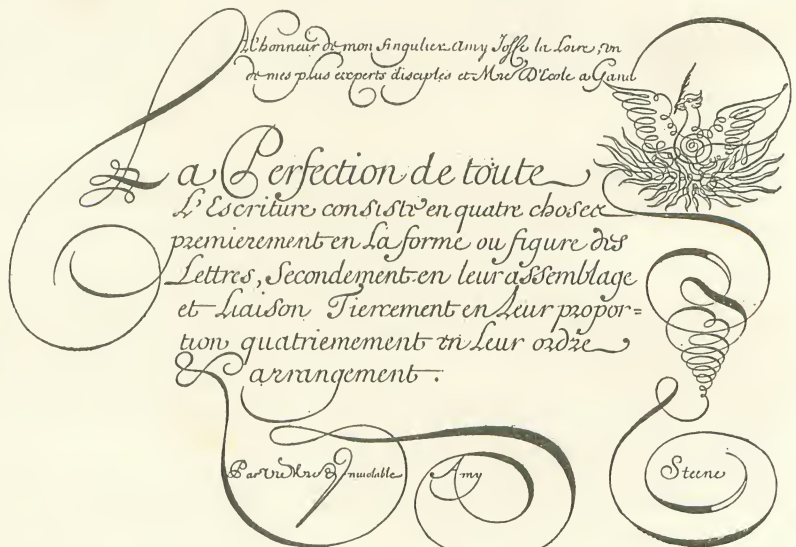 A l'honneur de mon singulier Amy Josse la Loire, un
de mes plus experts disciples et Mre D'Ecole a Gand
La Perfection de toute
L'Escriture consiste en quatre choses
premierement en La forme ou figure des
Lettres, Secondement en leur assemblage
et Liaison Tiercement en Leur propor=
tion quatriemement en Leur ordre
& arrangement.
Par Inviolable Amy Steene